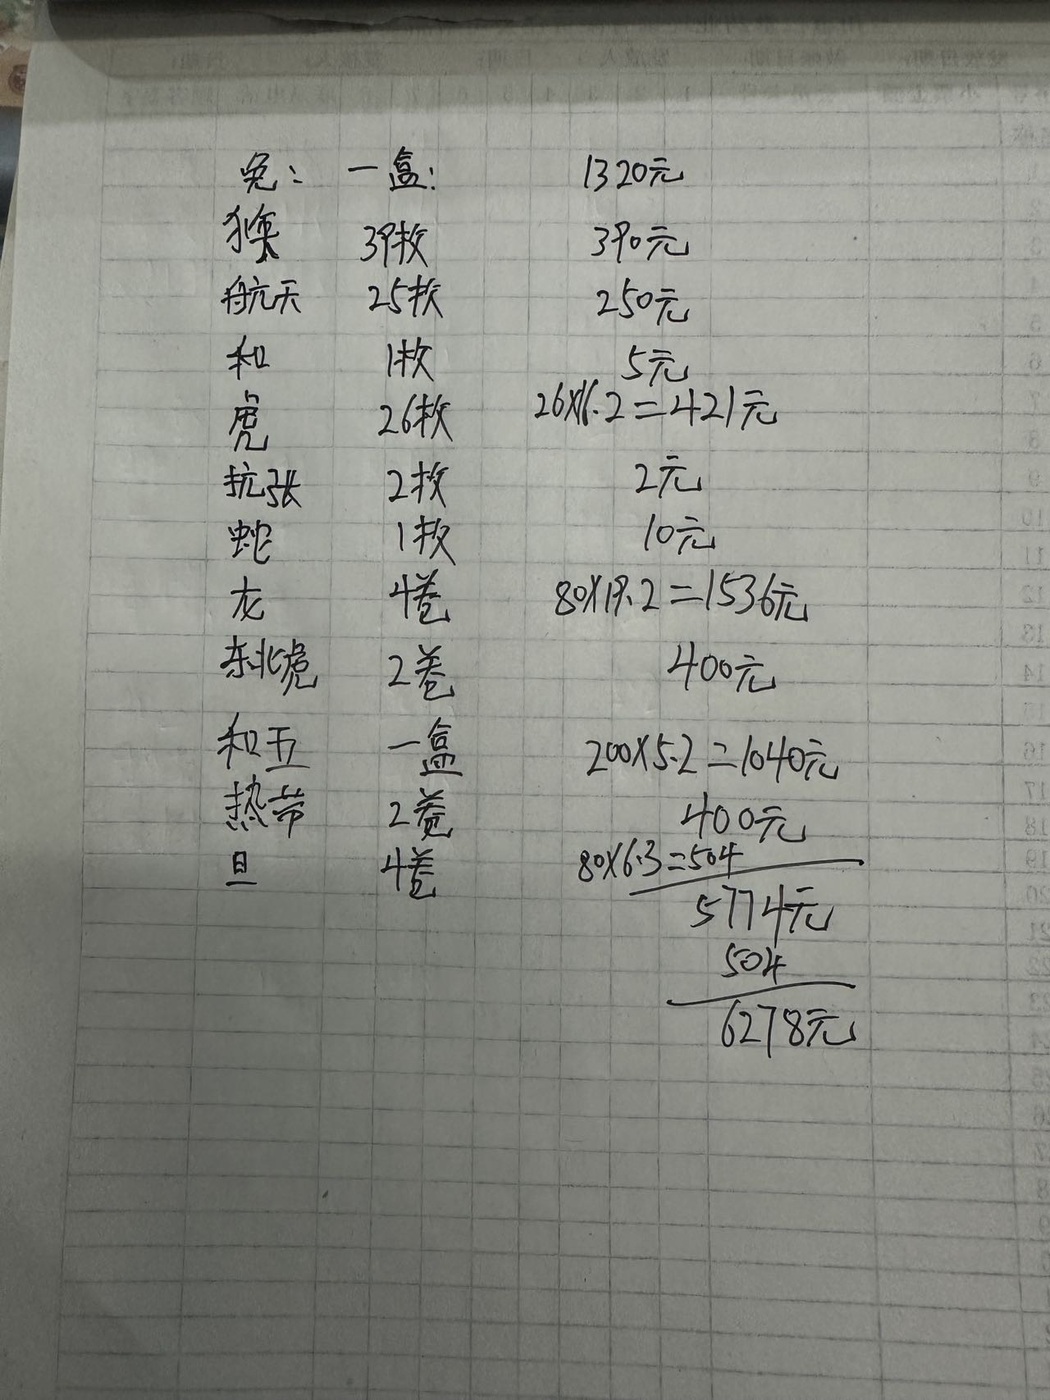 兔： 一盒： 1320元
猴 39枚 390元
航天 25枚 250元
和 1枚 5元
虎 26枚 26×16.2=421元
抗张 2枚 2元
蛇 1枚 10元
龙 4卷 80×19.2=1536元
东北虎 2卷 400元
和五 一盒 200×5.2=1040元
热带 2卷 400元
旦 4卷 80×6.3=504
5774元
504
6278元